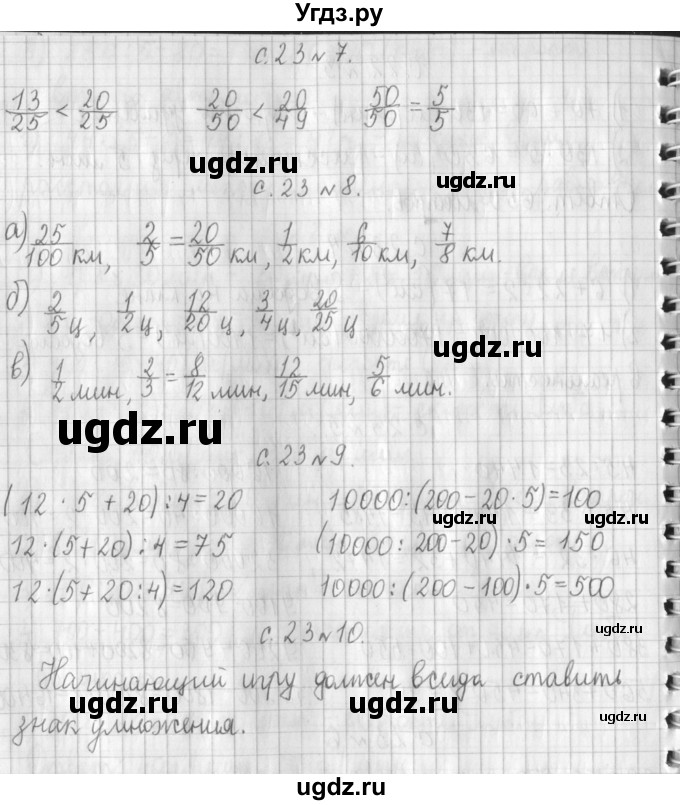 Угдз.ру
с. 23 № 7.
13/25 < 20/25   20/50 < 20/49   50/50 = 5/5
ugdz.ru
ugdz.ru
с. 23 № 8.
а) 25/100 км, 2/5 = 20/50 км, 1/2 км, 6/10 км, 7/8 км.
б) 2/5 ц, 1/2 ц, 12/20 ц, 3/4 ц, 20/25 ц
ugdz.ru
в) 1/2 мин, 2/3 = 8/12 мин, 12/15 мин, 5/6 мин.
ugdz.ru
с. 23 № 9.
(12 · 5 + 20) : 4 = 20   10000 : (200 - 20 · 5) = 100
ugdz.ru
ugdz.ru
12 · (5 + 20) : 4 = 75   (10000 : 200 - 20) · 5 = 150
12 · (5 + 20 : 4) = 120   10000 : (200 - 100) · 5 = 500
с. 23 № 10.
ugdz.ru
Начинающий игру должен всегда ставить
знак умножения.
ugdz.ru
ugdz.ru
ugdz.ru